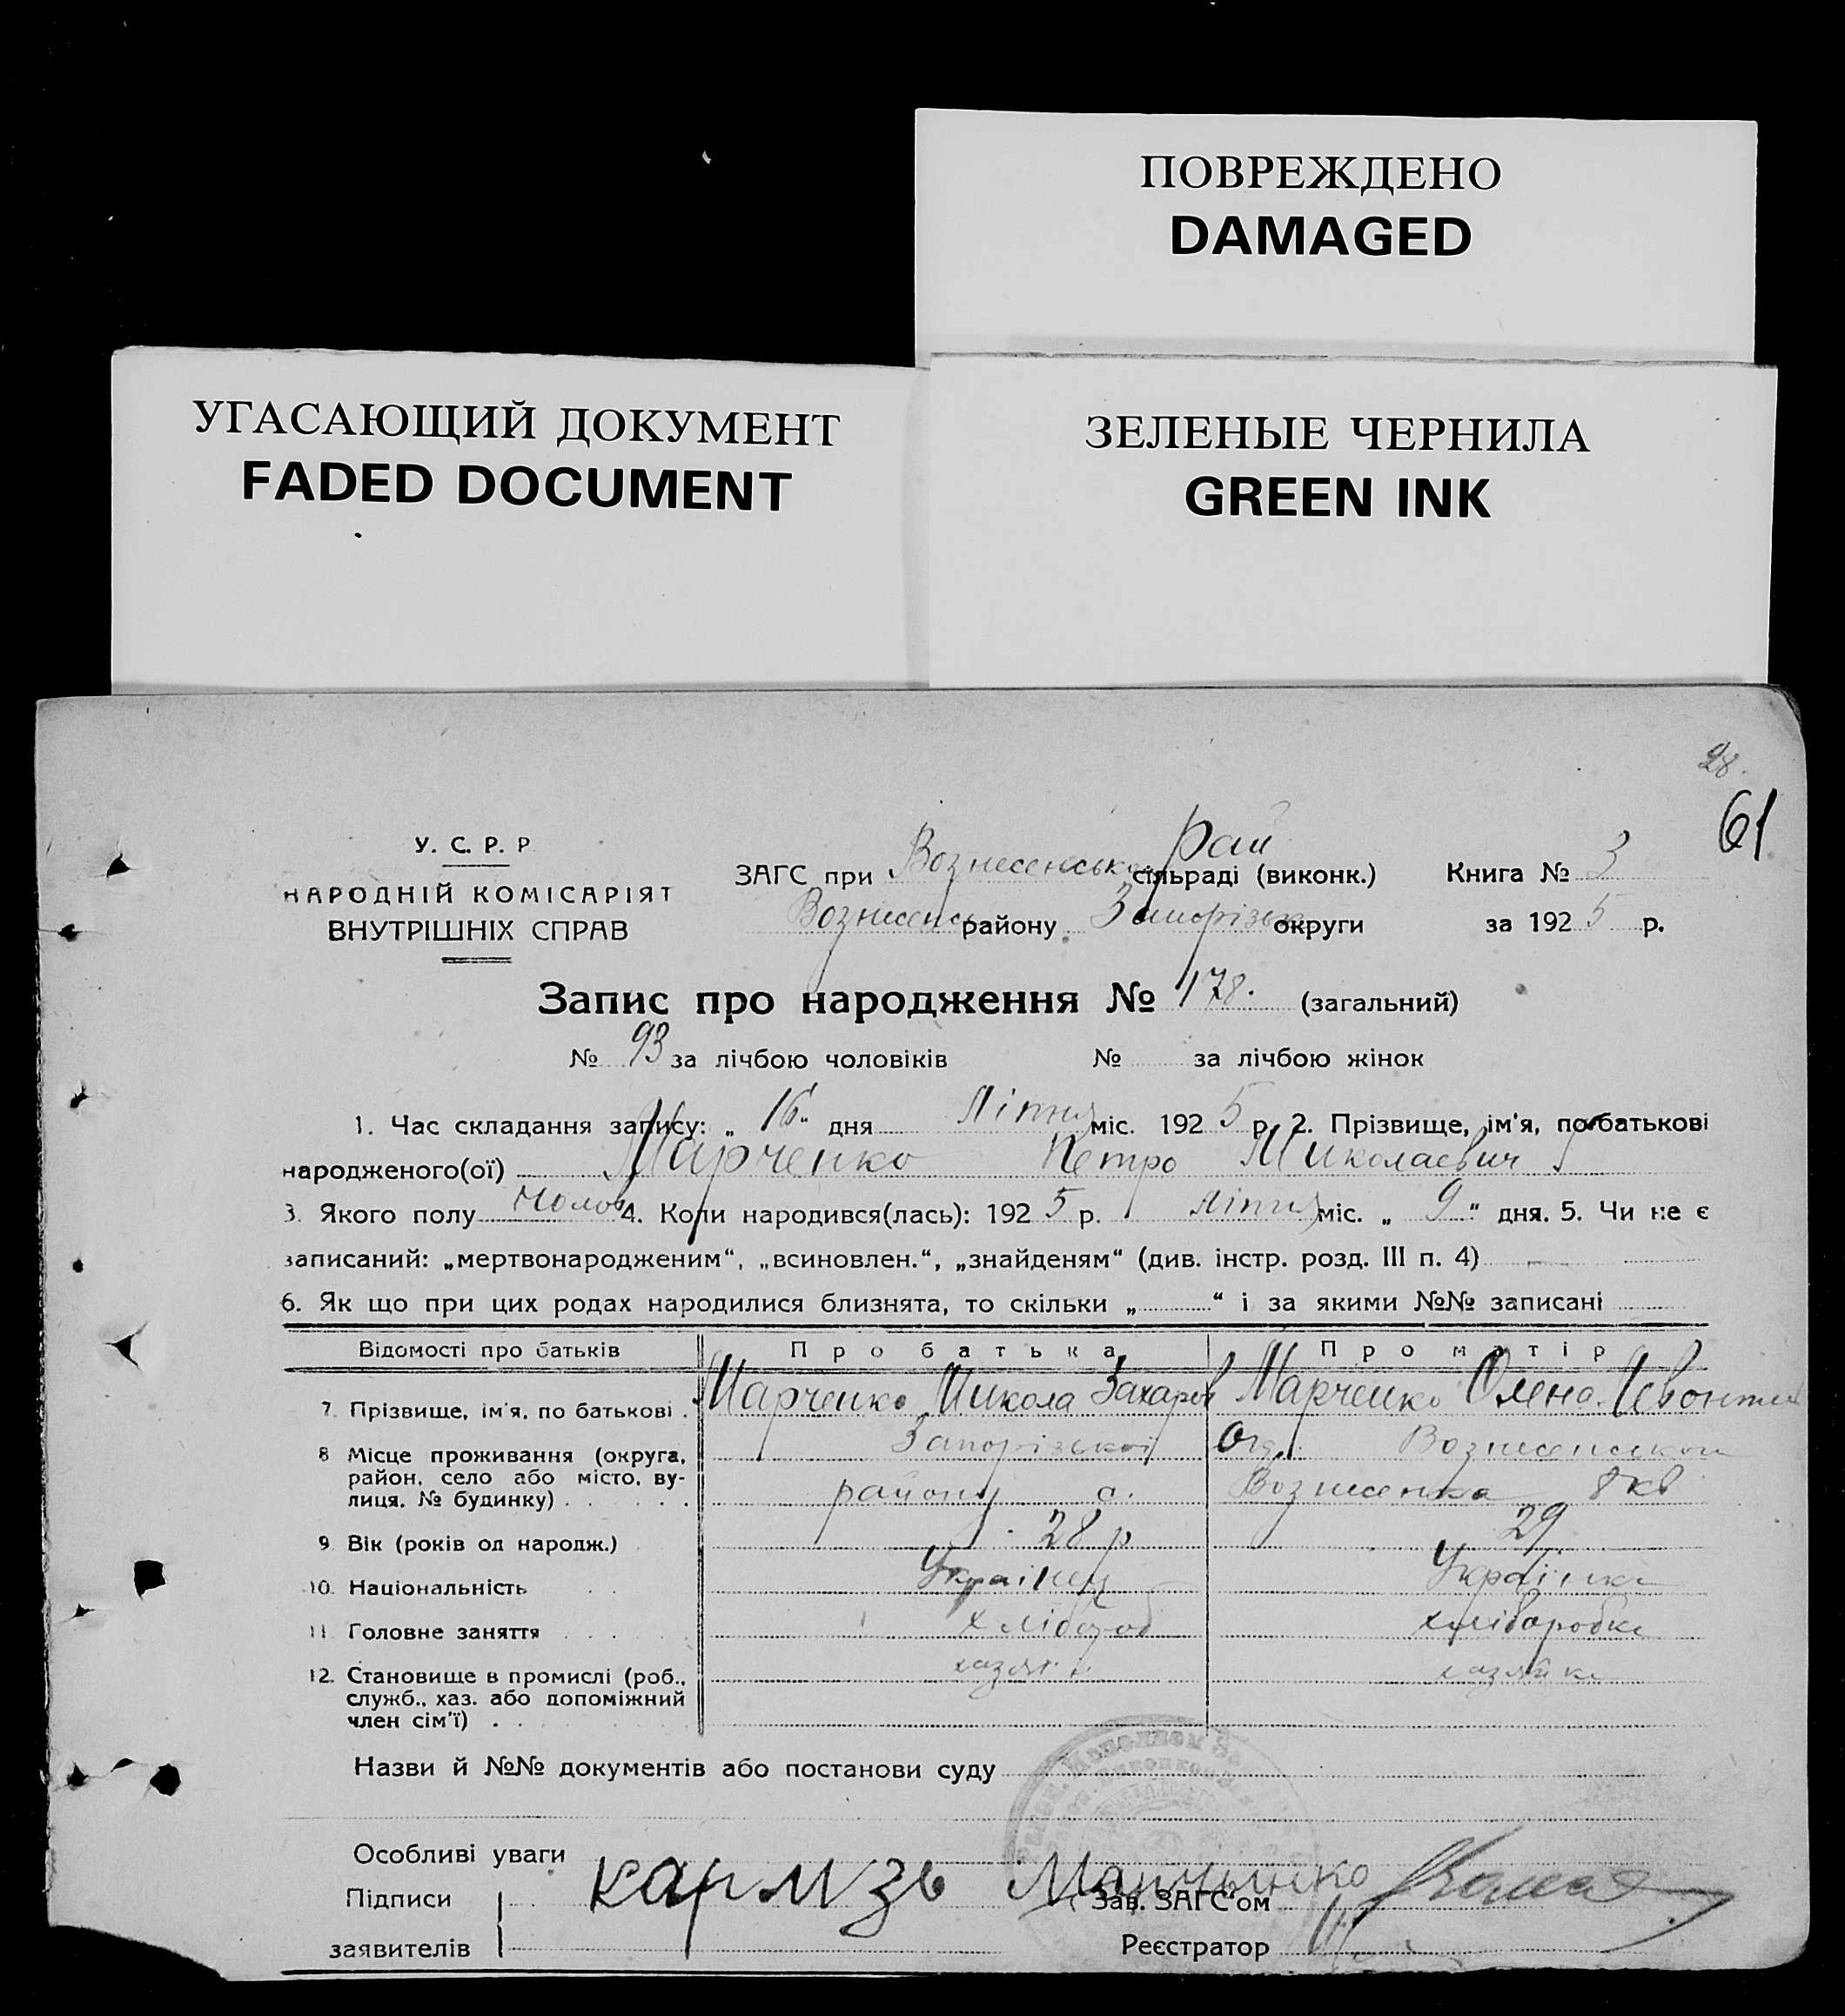 ПОВРЕЖДЕНО
DAMAGED
УГАСАЮЩИЙ ДОКУМЕНТ
FADED DOCUMENT
ЗЕЛЕНЫЕ ЧЕРНИЛА
GREEN INK
28.
61
У. С. Р. Р
НАРОДНІЙ КОМІСАРІЯТ
ВНУТРІШНІХ СПРАВ
Рай
ЗАГС при Вознесенськ сільраді (виконк.) Книга № 3
Вознесенськ району Запорізьк округи за 1925 р.
Запис про народження № 178. (загальний)
№ 93 за лічбою чоловіків № за лічбою жінок
1. Час складання запису: „ 16 " дня Літня міс. 1925 р. 2. Прізвище, ім'я, по батькові
народженого(ої) Марченко Петро Миколаевич
3. Якого полу Чолов 4. Коли народився(лась): 1925 р. Літня міс. „ 9 " дня. 5. Чи не є
записаний: „мертвонародженим“, „всиновлен.“, „знайденям“ (див. інстр. розд. III п. 4)
6. Як що при цих родах народилися близнята, то скільки „ “ і за якими №№ записані
Відомості про батьків Про батька Про матір
7. Прізвище, ім'я, по батькові Марченко Микола Захаров Марченко Олена
8 Місце проживання (округа, Запорізької Окр. Вознесенськои
район, село або місто, ву- району с. Вознесенка 8 кв
лиця, № будинку)
9 Вік (років од народж.) 28 р 29
10. Національність Українец Українка
11 Головне заняття хлібороб хліборобка
12. Становище в промислі (роб., хазяїн хазяйка
служб., хаз. або допоміжний
член сім'ї)
Назви й №№ документів або постанови суду
Особливі уваги
Підписи Зав. ЗАГС'ом
заявителів Реєстратор